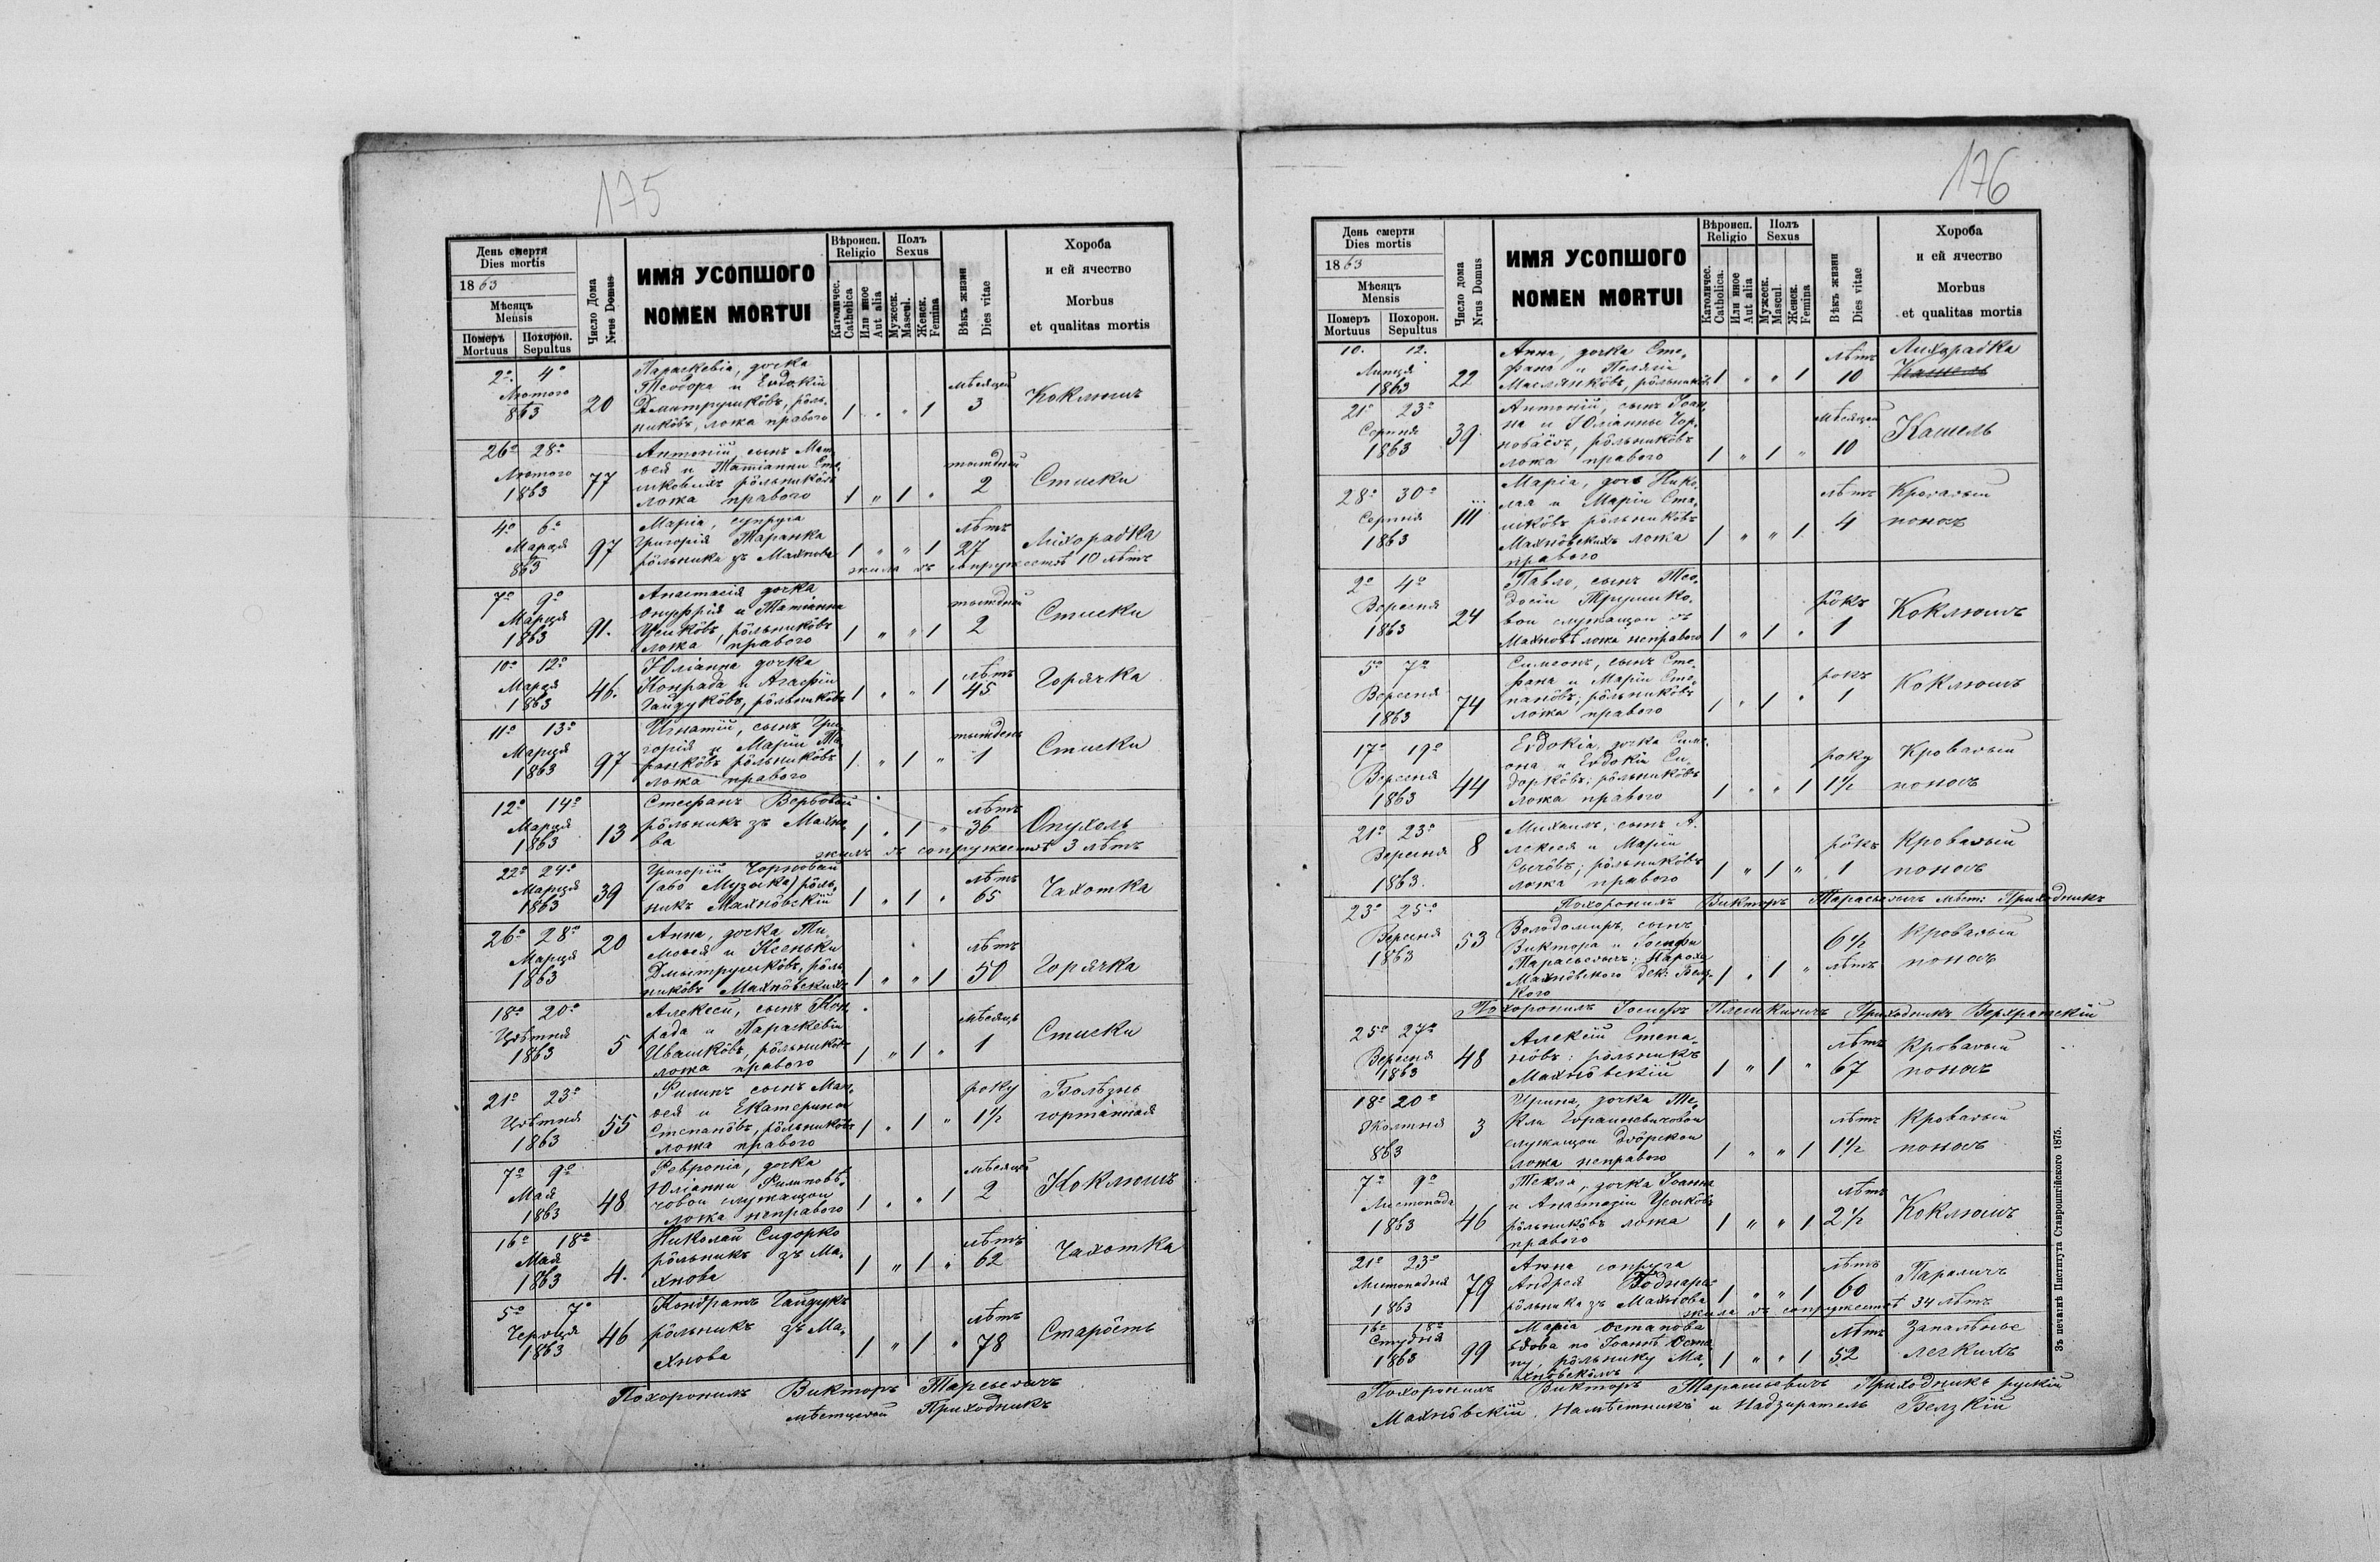 175
День смерти
Dies mortis
1863
Мѣсяцъ
Mensis
Померъ
Mortuus
Похорон.
Sepultus
Число Дома
Nrus Domus
ИМЯ УСОПШОГО
NOMEN MORTUI
Вѣроисп.
Religio
Католичес.
Catholica
Или иное
Aut alia
Полъ
Sexus
Мужеск.
Mascul.
Женск.
Femina
Вѣкъ жизни
Dies vitae
Хороба
и ей ячество
Morbus
et qualitas mortis
2º 4º
Лютого
863
20
Параскевіа, дочка
Теодора и Евдокіи
Дмитрушкôвъ, рôль-
никôвъ, ложа правого
1 „ „ 1
мѣсяцей
3
Коклюшъ
26º 28º
Лютого
1863
77
Антоній, сынъ Мат-
ѳея и Татіанны
рôльникôвъ
ложа правого
1 „ 1 „
тыждній
2
Стиски
4º 6º
Марця
863
97
Маріа, супруга
Григорія Таранка
рôльника зъ Махнова
1 „ „ 1
лѣтъ
27
Лихорадка
жила въ супружествѣ 10 лѣтъ
7º 9º
Марця
1863
91.
Анастасія дочка
Онуфрія и Татіанна
рôльникôвъ
ложа правого
1 „ „ 1
тыждній
2
Стиски
10º 12º
Марця
1863
46.
Юліанна дочка
Конрада и Агафіи
Гайдукôвъ, рôльникôвъ
1 „ „ 1
лѣтъ
45
Горячка
11º 13º
Марця
1863
97
Игнатій, сынъ Гри-
горія и Маріи Та-
ранкôвъ рôльникôвъ
ложа правого
1 „ 1 „
тыждень
1
Стиски
12º 14º
Марця
1863
13
Стефанъ Вербовый
рôльникъ зъ Махно-
ва
1 „ 1 „
лѣтъ
36
Опухоль
жилъ въ сопружествѣ 3 лѣтъ
22º 24º
Марця
1863
39
Григорій Чорновый
(або Музыка) рôль-
никъ Махнôвскій
1 „ 1 „
лѣтъ
65
Чахотка
26º 28º
Марця
1863
20
Анна, дочка Ти-
моѳея и Ксеньки
Дмытрушкôвъ, рôль-
никôвъ Махнôвскихъ
1 „ „ 1
лѣтъ
50
Горячка
18º 20º
Цвѣтня
1863
5
Алексей, сынъ Кон-
рада и Параскевіи
Ивашкôвъ, рôльникôвъ
ложа правого
1 „ 1 „
мѣсяцъ
1
Стиски
21º 23º
Цвѣтня
1863
55
Филипъ сынъ Мат-
ѳея и Екатерины
Степанôвъ, рôльникôвъ
ложа правого
1 „ 1 „
року
1½
Болѣзнь
гортанная
7º 9º
Мая
1863
48
Февронія, дочка
Юліанни Филипов-
човой служащой
ложа неправого
1 „ „ 1
мѣсяцѣ
2
Коклюшъ
16º 18º
Мая
1863
4.
Николай Сидорко
рôльникъ зъ Ма-
хнова
1 „ 1 „
лѣтъ
62
Чахотка
5º 7º
Червця
1863
46
Кондратъ Гайдукъ
рôльникъ зъ Ма-
хнова
1 „ 1 „
лѣтъ
78
Старôсть
Похоронилъ Викторъ Тарсьевичъ
мѣстцевый Приходникъ
176
День смерти
Dies mortis
1863
Мѣсяцъ
Mensis
Померъ
Mortuus
Похорон.
Sepultus
Число дома
Nrus Domus
ИМЯ УСОПШОГО
NOMEN MORTUI
Вѣроисп.
Religio
Католичес.
Catholica.
Или иное
Aut alia
Полъ
Sexus
Мужеск.
Mascul.
Женск.
Femina
Вѣкъ жизни
Dies vitae
Хороба
и ей ячество
Morbus
et qualitas mortis
10. 12.
Липця
1863
22
Анна, дочка Сте-
фана и Пелягіи
Маслянкôвъ, рôльникôвъ
1 „ „ 1
лѣтъ
10
Лихорадка
Кашель
21º 23º
Серпня
1863
39
Антоній, сынъ Іоан-
на и Юліанны Чор-
рôльникôвъ
ложа правого
1 „ 1 „
мѣсяцей
10
Кашель
28º 30º
Серпня
1863
111
Маріа, дочь Нико-
лая и Маріи Ста-
шкôвъ рôльникôвъ
Махнôвскихъ ложа
правого
1 „ „ 1
лѣтъ
4
Кровавый
поносъ
2º 4º
Вересня
1863
24
Павло, сынъ Тео-
досіи Трушко-
вои служащои въ
Махновѣ ложа неправого
1 „ 1 „
рôкъ
1
Коклюшъ
5º 7º
Вересня
1863
74
Симеонъ, сынъ Сте-
фана и Маріи Сте-
панôвъ; рôльникôвъ
ложа правого
1 „ 1 „
рокъ
1
Коклюшъ
17º 19º
Вересня
1863
44
Евдокіа, дочка Симе-
она и Евдокіи Си-
доркôвъ; рôльникôвъ
ложа правого
1 „ „ 1
року
1½
Кровавый
поносъ
21º 23º
Вересня
1863.
8
Михаилъ, сынъ А-
лексея и Маріи
Сычôвъ; рôльникôвъ
ложа правого
1 „ 1 „
рôкъ
1
Кровавый
поносъ
Похоронилъ Викторъ Тарасьевичъ мѣст: Приходникъ
23º 25º
Вересня
1863
53
Володомиръ, сынъ
Виктора и Іосифы
Тарасьевичъ: Пароха
Махнôвского Дек: Белз-
кого
1 „ 1 „
6½
лѣтъ
Кровавый
поносъ
Похоронилъ Іосифъ Плешкевичъ Приходникъ Верхратскій
25º 27º
Вересня
1863
48
Алексій Степа-
нôвъ: рôльникъ
Махнôвскій
1 „ 1 „
лѣтъ
67
Кровавый
поносъ
18º 20º
Жолтня
863
3
Ирина, дочка Те-
кли
служащои двôрскои
ложа неправого
1 „ „ 1
лѣтъ
1½
Кровавый
поносъ
7º 9º
Листопада
1863
46
Текля, дочка Іоанна
и Анастазіи
рôльникôвъ ложа
правого
1 „ „ 1
лѣтъ
2½
Коклюшъ
21º 23º
Листопадня
1863
79
Анна сопруга
Андрея Боднаръ
рôльника зъ Махнова
1 „ „ 1
лѣтъ
60
Параличъ
жила въ сопружествѣ 34 лѣтъ
16º 18º
Студня
1863
99
Маріа Остапова
вдова по Іоаннѣ Оста-
пу, рôльнику Ма-
хнôвскôмъ
1 „ „ 1
лѣтъ
52
Запалѣнье
легкихъ
Похоронилъ Викторъ Тарасьевичъ Приходникъ рускій
Махнôвскій, Намѣстникъ и Надзиратель Белзкій
Зъ печатнѣ Института Ставропигійского 1875.